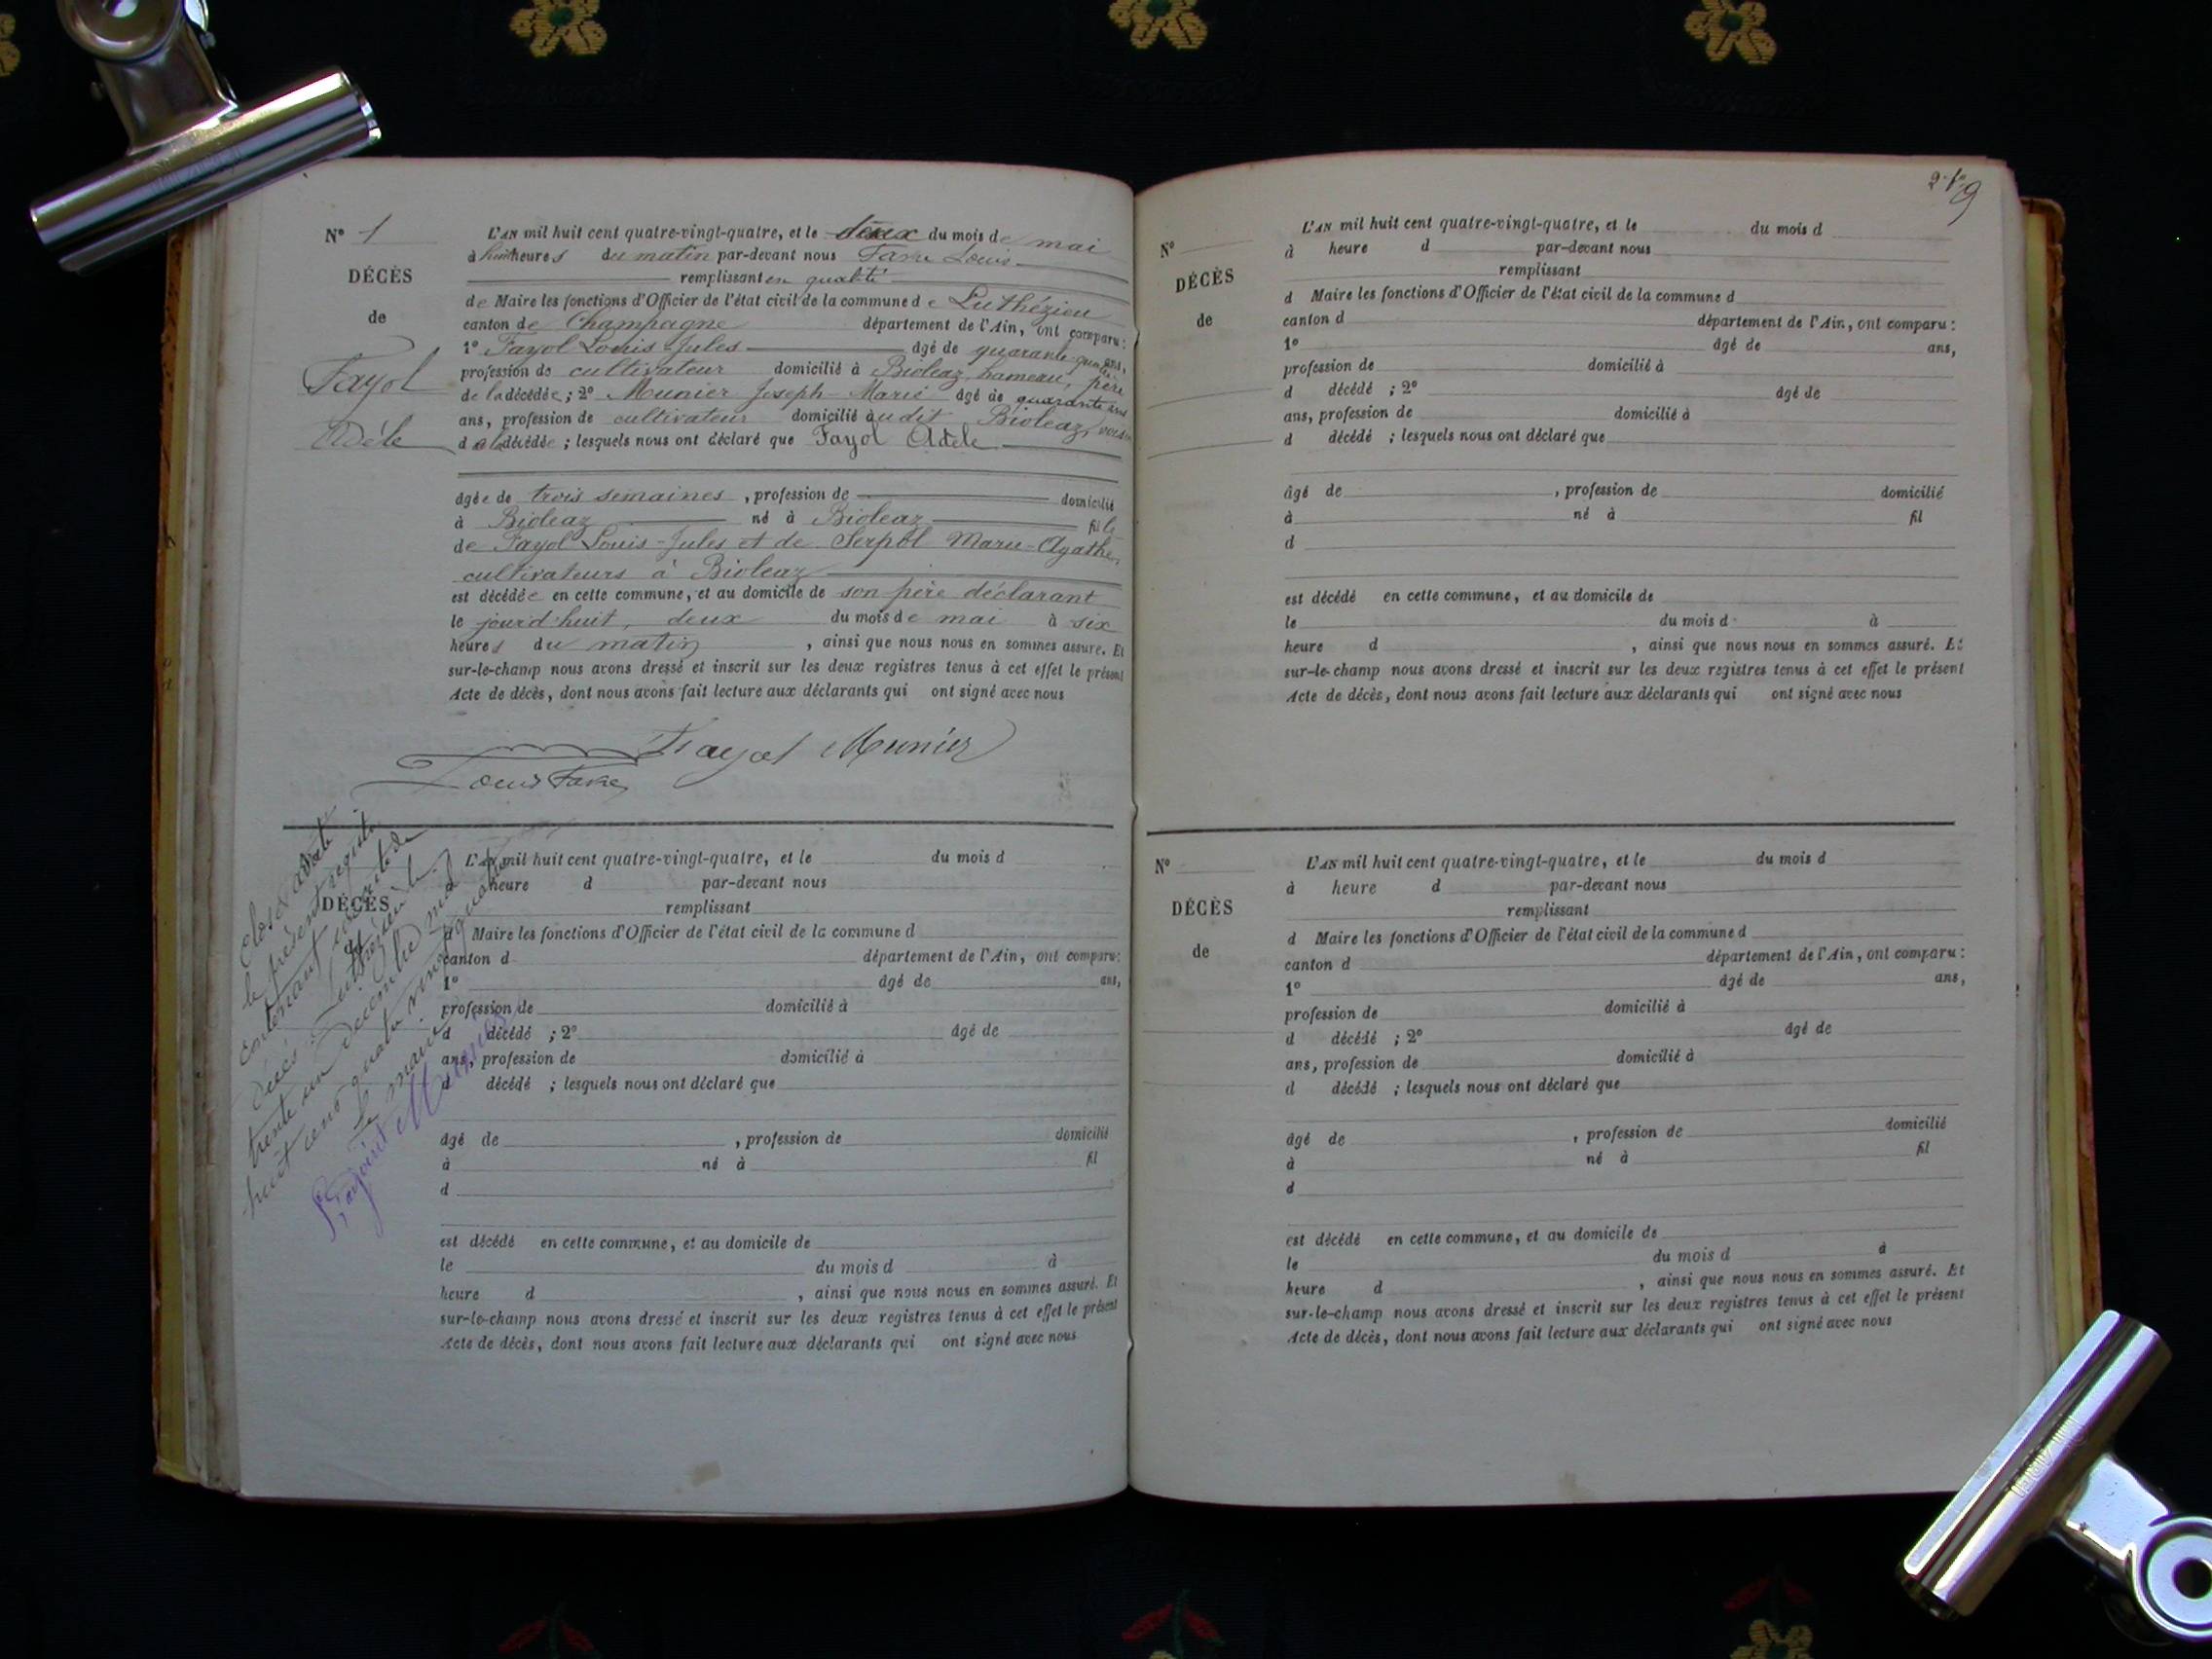 N° 1
DÉCÈS
de
Fayol
Adèle
L'AN mil huit cent quatre-vingt-quatre, et le deux du mois de mai
à huit heures du matin par-devant nous Favre Louis
remplissant en qualité
de Maire les fonctions d'Officier de l'état civil de la commune de Luthézieu
canton de Champagne département de l'Ain, ont comparu :
1° Fayol Louis-Jules âgé de quarante-quatre ans,
profession de cultivateur domicilié à Bioleaz, hameau, père
de la décédée ; 2° Munier Joseph-Marie âgé de quarante
ans, profession de cultivateur domicilié audit Bioleaz, voisin
de la décédée ; lesquels nous ont déclaré que Fayol Adèle
âgée de trois semaines , profession de domicilié
à Bioleaz né à Bioleaz fille
de Fayol Louis-Jules et de Serpol Marie-Agathe,
cultivateurs à Bioleaz
est décédée en cette commune, et au domicile de son père déclarant
le jourd'huit, deux du mois de mai à six
heures du matin , ainsi que nous nous en sommes assuré. Et
sur-le-champ nous avons dressé et inscrit sur les deux registres tenus à cet effet le présent
Acte de décès, dont nous avons fait lecture aux déclarants qui ont signé avec nous
Fayol Munier
Louis Favre
Clos & arrêté
le présent registre
contenant acte de
décès Luthézieu le
trente un Décembre mil
huit cent quatre vingt quatre
Le maire
Munier
DÉCÈS
L'AN mil huit cent quatre-vingt-quatre, et le du mois d
à heure d par-devant nous
remplissant
d Maire les fonctions d'Officier de l'état civil de la commune d
canton d département de l'Ain, ont comparu :
1° âgé de ans,
profession de domicilié à
d décédé ; 2° âgé de
ans, profession de domicilié à
d décédé ; lesquels nous ont déclaré que
âgé de , profession de domicilié
à né à fil
d
est décédé en cette commune, et au domicile de
le du mois d à
heure d , ainsi que nous nous en sommes assuré. Et
sur-le-champ nous avons dressé et inscrit sur les deux registres tenus à cet effet le présent
Acte de décès, dont nous avons fait lecture aux déclarants qui ont signé avec nous
9
N°
DÉCÈS
de
L'AN mil huit cent quatre-vingt-quatre, et le du mois d
à heure d par-devant nous
remplissant
d Maire les fonctions d'Officier de l'état civil de la commune d
canton d département de l'Ain, ont comparu :
1° âgé de ans,
profession de domicilié à
d décédé ; 2° âgé de
ans, profession de domicilié à
d décédé ; lesquels nous ont déclaré que
âgé de , profession de domicilié
à né à fil
d
est décédé en cette commune, et au domicile de
le du mois d à
heure d , ainsi que nous nous en sommes assuré. Et
sur-le-champ nous avons dressé et inscrit sur les deux registres tenus à cet effet le présent
Acte de décès, dont nous avons fait lecture aux déclarants qui ont signé avec nous
N°
DÉCÈS
de
L'AN mil huit cent quatre-vingt-quatre, et le du mois d
à heure d par-devant nous
remplissant
d Maire les fonctions d'Officier de l'état civil de la commune d
canton d département de l'Ain, ont comparu :
1° âgé de ans,
profession de domicilié à
d décédé ; 2° âgé de
ans, profession de domicilié à
d décédé ; lesquels nous ont déclaré que
âgé de , profession de domicilié
à né à fil
d
est décédé en cette commune, et au domicile de
le du mois d à
heure d , ainsi que nous nous en sommes assuré. Et
sur-le-champ nous avons dressé et inscrit sur les deux registres tenus à cet effet le présent
Acte de décès, dont nous avons fait lecture aux déclarants qui ont signé avec nous